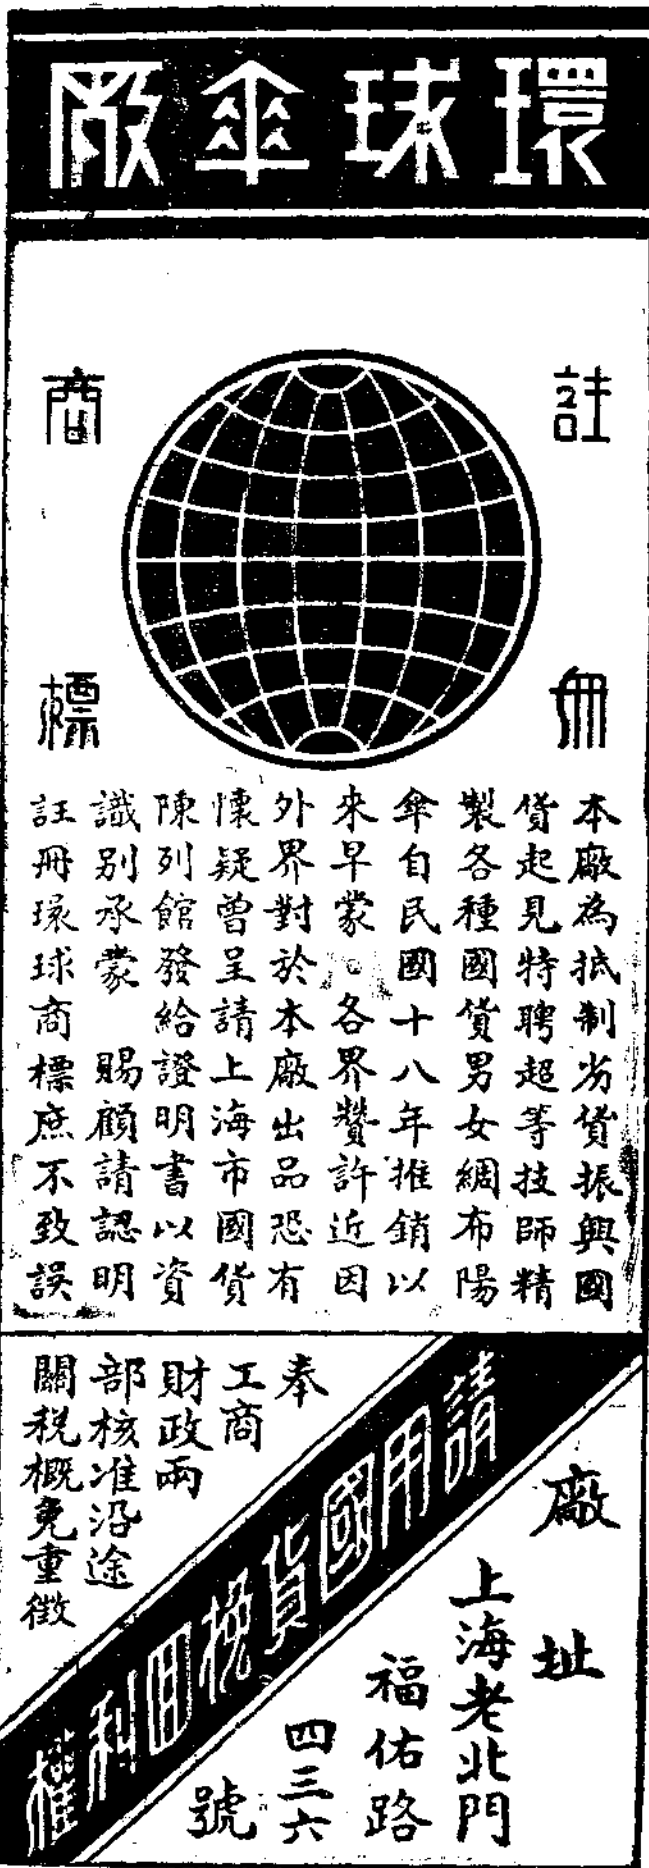 環球傘厰
註冊
商標
本廠為抵制劣貨振興國
貨起見特聘超等技師精
製各種國貨男女綢布陽
傘自民國十八年推銷以
來早蒙 各界贊許近因
外界對於本廠出品恐有
懷疑曾呈請上海市國貨
陳列館發給證明書以資
識別承蒙 賜顧請認明
註冊環球商標庶不致誤
請用國貨挽回利權
奉
工商
財政兩
部核准沿途
關稅概免重徵
廠址
上海老北門
福佑路
四三六
號